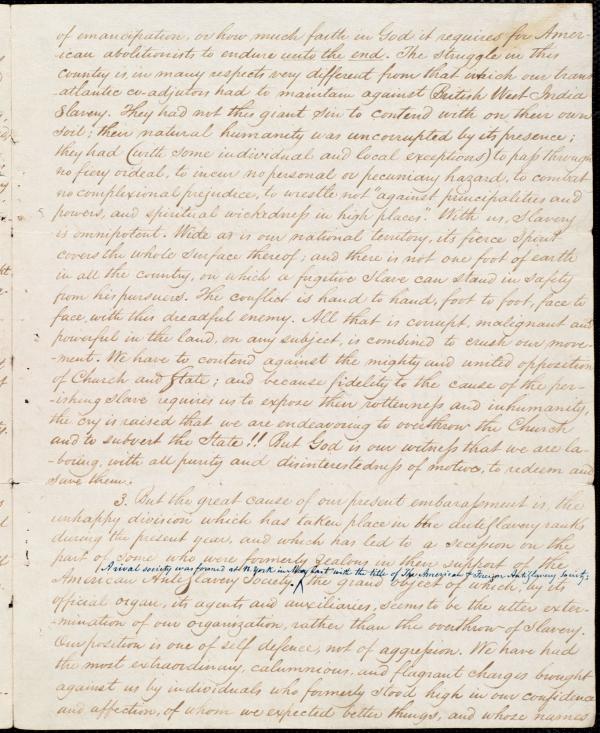 of emancipation, or how much faith in God it requires for Amer-
-ican abolitionists to endure unto the end. The struggle in this
country is in many respects very different from that which our trans-
-atlantic co-adjutors had to maintain against British West India
Slavery. They had not this giant sin to contend with on their own
soil; their natural humanity was uncorrupted by its presence;
they had (with some individual and local exceptions) to pass through
no fiery ordeal, to incur no personal or pecuniary hazard, to combat
no complexional prejudice, to wrestle not "against principalities and
powers, and spiritual wickedness in high places." With us, Slavery
is omnipotent. Wide as is our national territory, its fierce Spirit
covers the whole surface thereof; and there is not one foot of earth
in all the country, on which a fugitive Slave can stand in safety
from his pursuers. The conflict is hand to hand, foot to foot, face to
face, with this dreadful enemy. All that is corrupt, malignant and
powerful in the land, on any subject, is combined to crush our move-
-ment. We have to contend against the mighty and united opposition
of Church and State; and because fidelity to the cause of the per-
-ishing Slave requires us to expose their rottenness and inhumanity,
the cry is raised that we are endeavoring to overthrow the Church
and to subvert the State!! But God is our witness that we are la-
-boring, with all purity and disinterestedness of motive, to redeem and
save them.
3. But the great cause of our present embarassment is, the
unhappy division which has taken place in the antiSlavery ranks
during the present year, and which has led to a secession on the
part of some who were formerly zealous in their support of the
(A rival society was formed at N. York in May last with the title of The American & Foreign AntiSlavery Society;
American AntiSlavery Society. the grand object of which, by its
official organ, its agents and auxiliaries, seems to be the utter exter-
-mination of our organization, rather than the overthrow of Slavery.
Our position is one of self defence, not of aggression. We have had
the most extraordinary, calumnious, and flagrant charges brought
against us by individuals who formerly stood high in our confidence
and affection, of whom we expected better things, and whose names